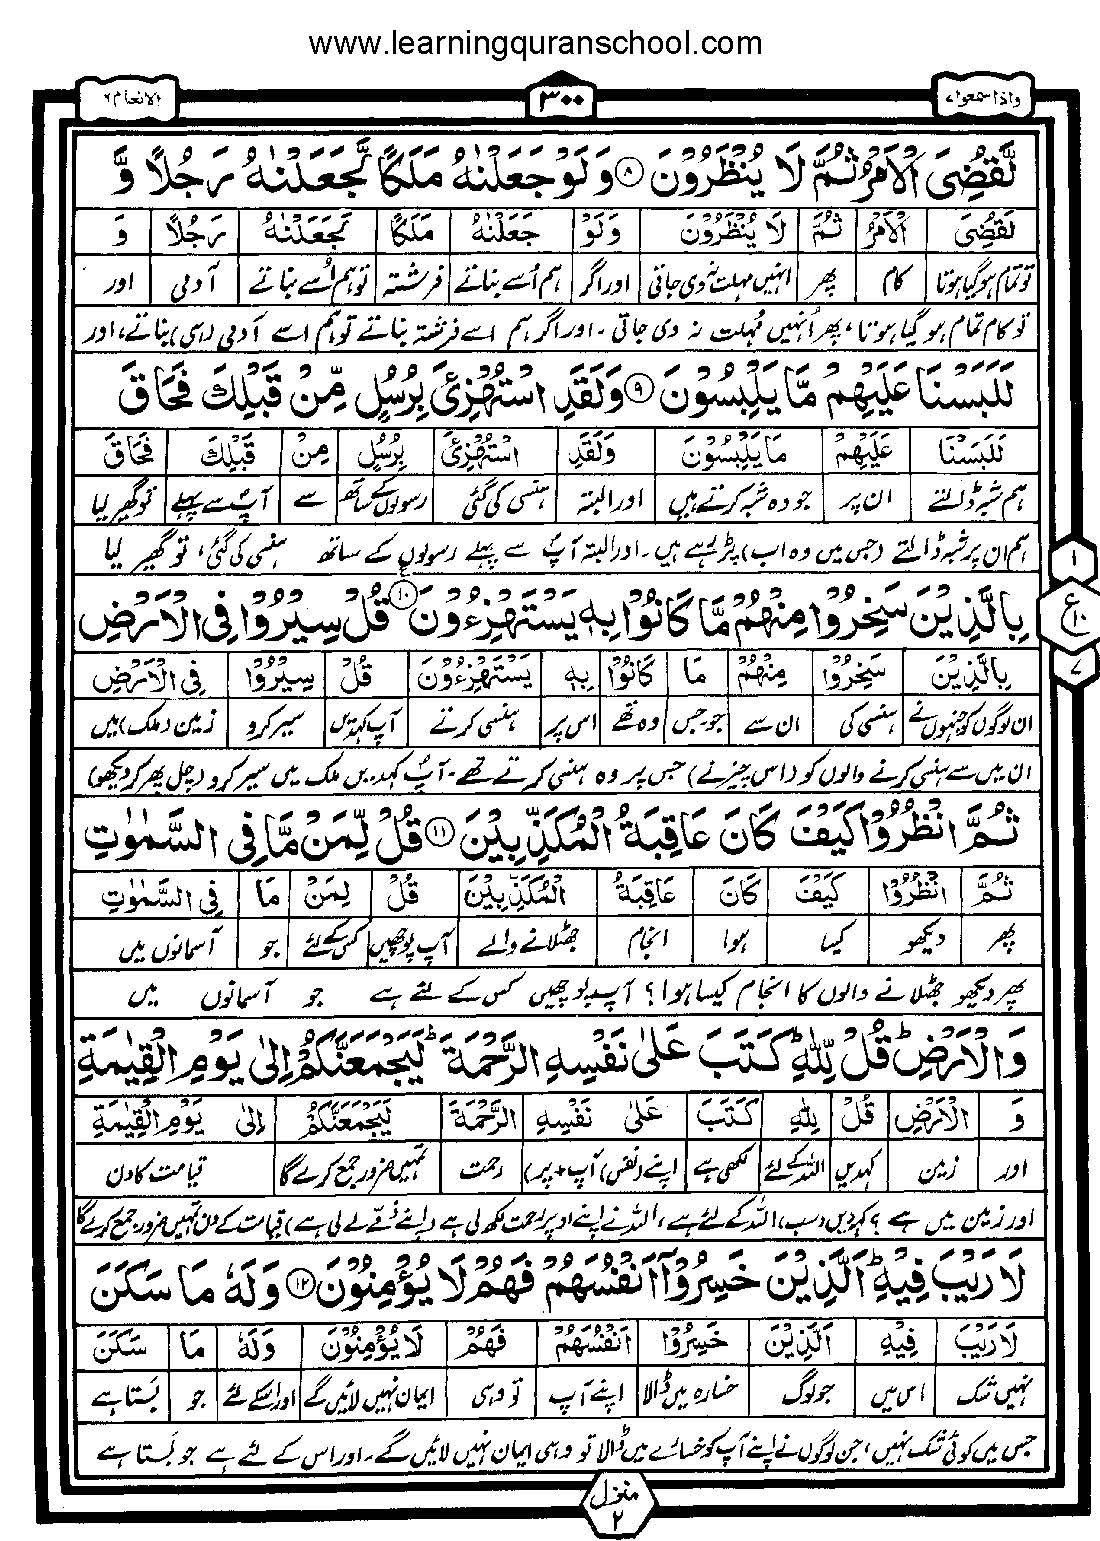 www.learningquranschool.com
واذا سمعوا ٧
٣٠٠
الانعام ٦
لَّقُضِىَ الْاَمْرُ ثُمَّ لَا يُنْظَرُوْنَ ٨ وَلَوْ جَعَلْنٰهُ مَلَكًا لَّجَعَلْنٰهُ رَجُلًا وَّ
لَقُضِىَ الْاَمْرُ ثُمَّ لَا يُنْظَرُوْنَ وَلَوْ جَعَلْنٰهُ مَلَكًا لَّجَعَلْنٰهُ رَجُلًا وَّ
تو تمام ہو گیا ہوتا کام پھر انہیں مہلت نہ دی جاتی اور اگر ہم اُسے بناتے فرشتہ تو ہم اُسے بناتے آدمی اور
تو کام تمام ہو گیا ہوتا، پھر اُنہیں مُہلت نہ دی جاتی ۔ اور اگر ہم اسے فرشتہ بناتے تو ہم اسے آدمی (ہی) بناتے، اور
لَلَبَسْنَا عَلَيْهِمْ مَّا يَلْبِسُوْنَ ٩ وَلَقَدِ اسْتُهْزِئَ بِرُسُلٍ مِّنْ قَبْلِكَ فَحَاقَ
لَلَبَسْنَا عَلَيْهِمْ مَا يَلْبِسُوْنَ وَلَقَدِ اسْتُهْزِئَ بِرُسُلٍ مِنْ قَبْلِكَ فَحَاقَ
ہم شبہ ڈالتے ان پر جو وہ شبہ کرتے ہیں اور البتہ ہنسی کی گئی رسولوں کے ساتھ سے آپؐ سے پہلے تو گھیر لیا
ہم ان پر شبہ ڈالتے (جس میں وہ اب) پڑ رہے ہیں ۔ اور البتہ آپؐ سے پہلے رسولوں کے ساتھ ہنسی کی گئی، تو گھیر لیا
بِالَّذِيْنَ سَخِرُوْا مِنْهُمْ مَّا كَانُوْا بِهٖ يَسْتَهْزِءُوْنَ ١٠ قُلْ سِيْرُوْا فِى الْاَرْضِ
١
ع
١٠
٧
بِالَّذِيْنَ سَخِرُوْا مِنْهُمْ مَا كَانُوْا بِهٖ يَسْتَهْزِءُوْنَ قُلْ سِيْرُوْا فِى الْاَرْضِ
ان لوگوں کو جنہوں نے ہنسی کی ان سے جو جس وہ تھے اس پر ہنسی کرتے آپ کہدیں سیر کرو زمین (ملک) میں
ان میں سے ہنسی کرنے والوں کو (اس چیز نے) جس پر وہ ہنسی کرتے تھے ۔ آپؐ کہدیں ملک میں سیر کرو (چل پھر کر دیکھو)
ثُمَّ انْظُرُوْا كَيْفَ كَانَ عَاقِبَةُ الْمُكَذِّبِيْنَ ١١ قُلْ لِّمَنْ مَّا فِى السَّمٰوٰتِ
ثُمَّ انْظُرُوْا كَيْفَ كَانَ عَاقِبَةُ الْمُكَذِّبِيْنَ قُلْ لِمَنْ مَا فِى السَّمٰوٰتِ
پھر دیکھو کیسا ہوا انجام جھٹلانے والے آپ پوچھیں کس کے لئے جو آسمانوں میں
پھر دیکھو جھٹلانے والوں کا انجام کیسا ہوا؟ آپ پوچھیں کس کے لئے ہے جو آسمانوں میں
وَالْاَرْضِ ؕ قُلْ لِّلّٰهِ ؕ كَتَبَ عَلٰى نَفْسِهِ الرَّحْمَةَ ؕ لَيَجْمَعَنَّكُمْ اِلٰى يَوْمِ الْقِيٰمَةِ
وَ الْاَرْضِ قُلْ لِلّٰهِ كَتَبَ عَلٰى نَفْسِهِ الرَّحْمَةَ لَيَجْمَعَنَّكُمْ اِلٰى يَوْمِ الْقِيٰمَةِ
اور زمین کہدیں اللہ کے لئے لکھی ہے اپنے (نفس) آپ + پر) رحمت تمہیں ضرور جمع کرے گا قیامت کا دن
اور زمین میں ہے؟ کہدیں (سب) اللہ کے لئے ہے، اللہ نے اپنے اوپر رحمت لکھ لی ہے (اپنے ذمّے لے لی ہے) قیامت کے دن تمہیں ضرور جمع کرے گا
لَا رَيْبَ فِيْهِ ؕ اَلَّذِيْنَ خَسِرُوْۤا اَنْفُسَهُمْ فَهُمْ لَا يُؤْمِنُوْنَ ١٢ وَلَهٗ مَا سَكَنَ
لَا رَيْبَ فِيْهِ اَلَّذِيْنَ خَسِرُوْا اَنْفُسَهُمْ فَهُمْ لَا يُؤْمِنُوْنَ وَلَهٗ مَا سَكَنَ
نہیں شک اس میں جو لوگ خسارہ میں ڈالا اپنے آپ تو وہی ایمان نہیں لائیں گے اور اسکے لئے جو بَستا ہے
جس میں کوئی شک نہیں، جن لوگوں نے اپنے آپ کو خسارے میں ڈالا تو وہی ایمان نہیں لائیں گے ۔ اور اس کے لئے ہے جو بَستا ہے
منزل
٢